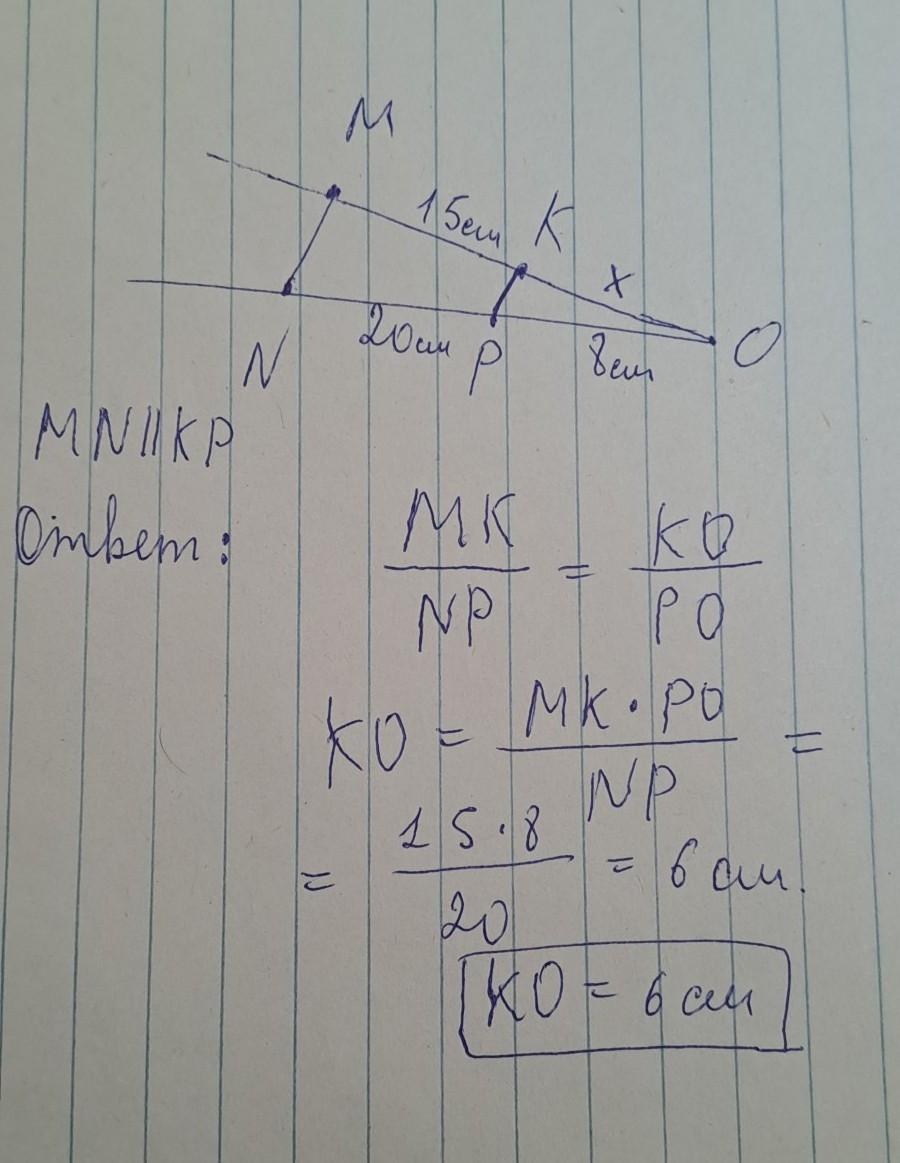 M
15см K
x
20см
N P 8см O
MN||KP
Ответ: MK/NP = KO/PO
KO = MK·PO/NP =
= 15·8/20 = 6 см.
KO = 6 см